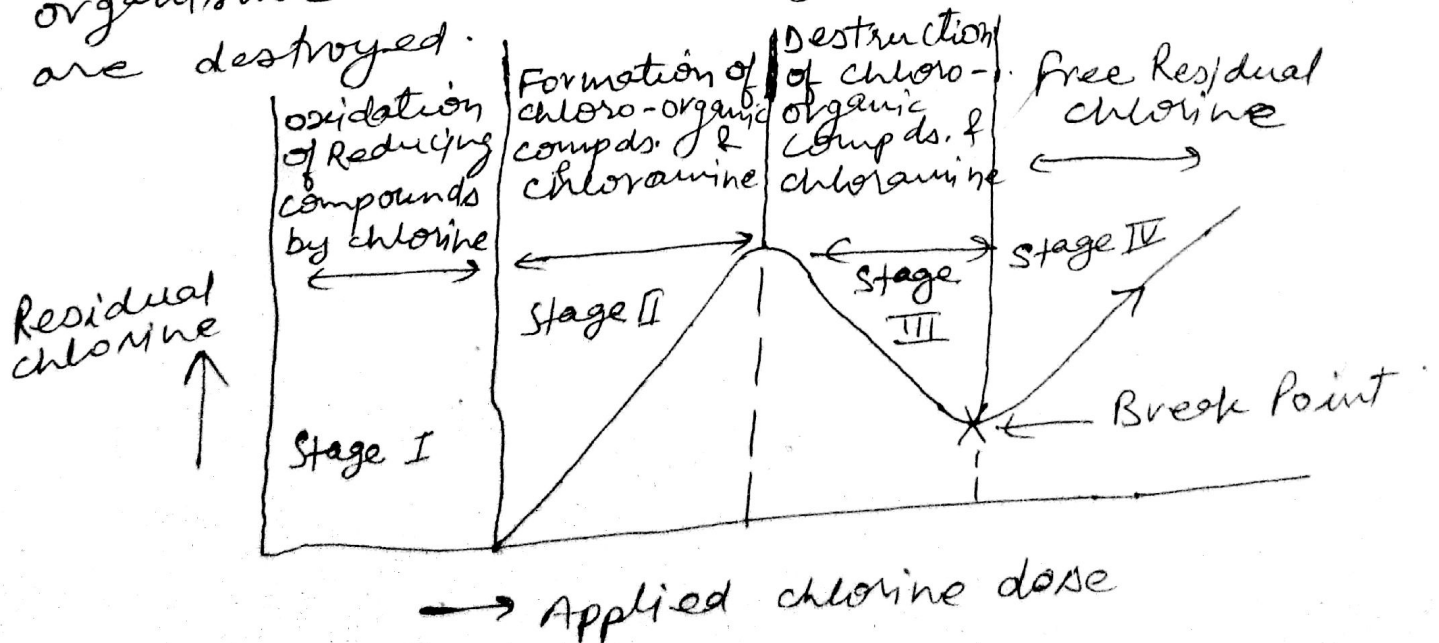 are destroyed.
oxidation
of Reducing
compounds
by chlorine
Formation of
chloro-organic
compds. &
chloramine
Destruction
of chloro-
organic
compds. &
chloramine
Free Residual
chlorine
Residual
chlorine
Stage I
Stage II
Stage
III
Stage IV
Break Point
Applied chlorine dose